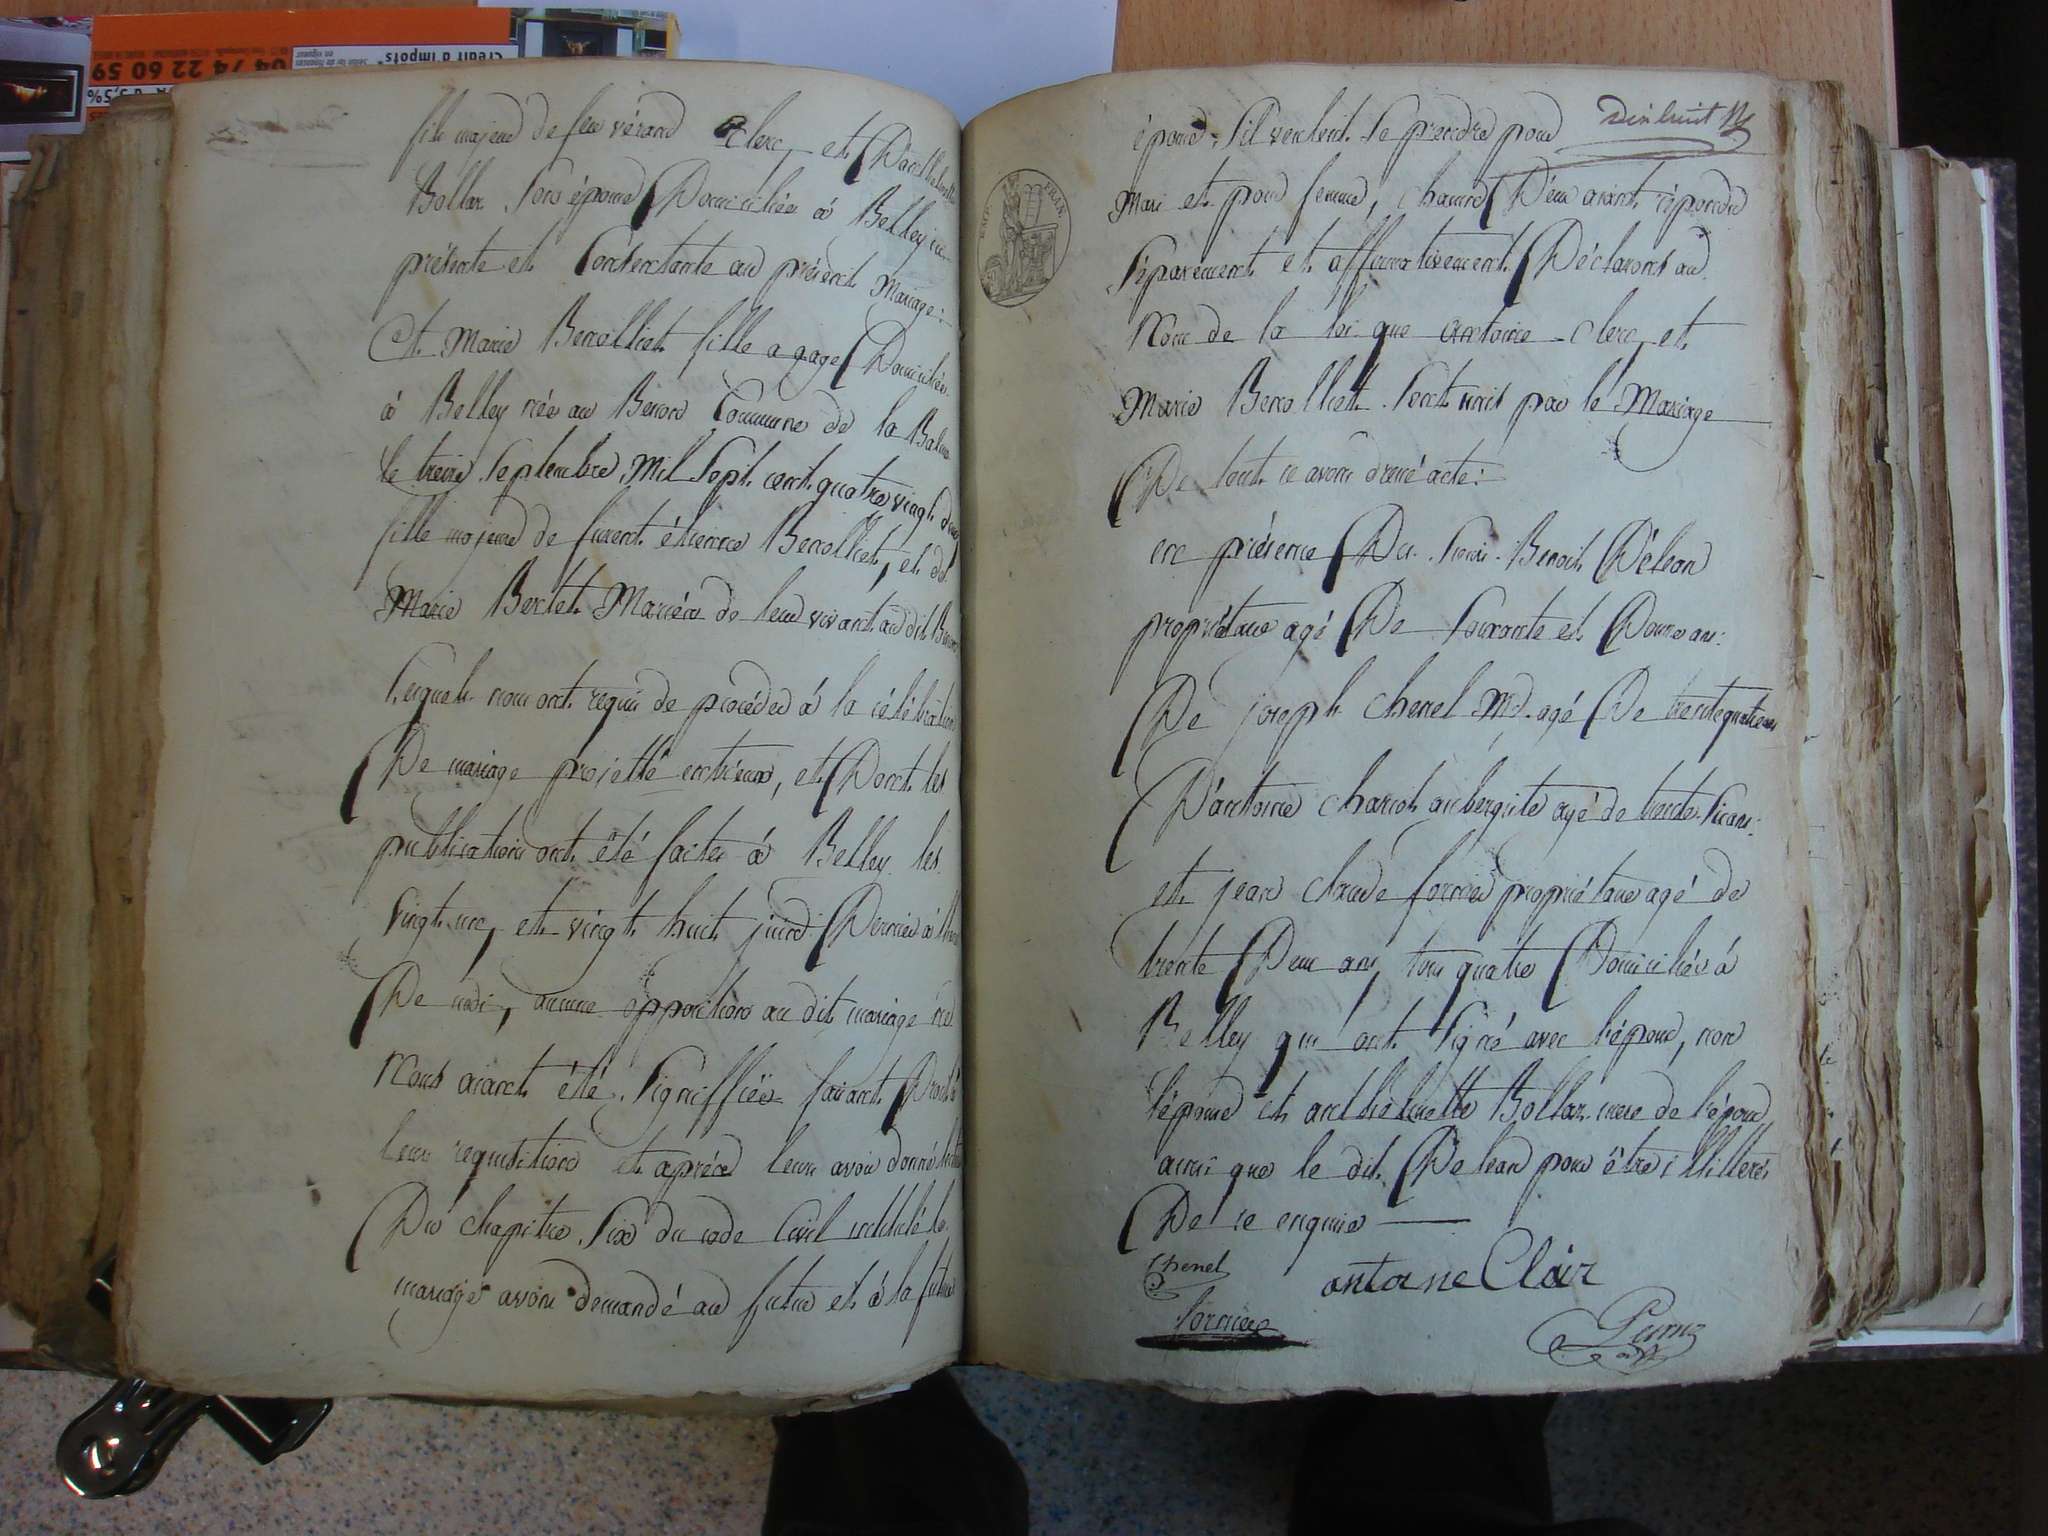 04 74 22 60 59
Crédit d'impôts*
5,5%
fils majeur de feu vérand clerc, et D'anthelmette
Bollar son épouse Domiciliée à Belley ici
présente et Consentante au présent mariage:
Et Marie Berrolliet fille a gage Domiciliée
à Belley née au Benon Commune de la Balme
le treize Septembre Mil Sept cent quatre vingt deux
fille majeure de furent étienne Berrolliet, et de
Marie Bertet Mariés de leur vivant au dit Benon
Lesquels nous ont requis de procéder à la célébration
De mariage projetté entr'eux, et Dont les
publications ont été faites à Belley les
vingt un, et vingt huit juin Dernier à l'heure
De midi, aucune opposition au dit mariage ne
Nous aiant été Signiffiée faisant Droit à
leur requisition et après leur avoir donné lecture
Du chapitre Six du code Civil intitulé du
mariage avons demandé au futur et à la future
Dix huit
épouse S'il veulent Se prendre pour
EMP. FRAN.
Mari et pour femme, chacun D'eux aiant répondu
Séparement et affirmativement Déclarons au
Nom de la loi que antoine clerc, et
Marie Berrolliet Sont unis par le Mariage
De tout ce avons dressé acte:
en présence Du Sieur Benoit Délean
propriétaire agé De Soixante et Douze ans:
De joseph Chenel Md. agé De trente quatre ans
D'antoine charcot aubergiste agé de trente Six ans:
et jean claude fornier propriétaire agé de
trente Deux ans, tous quatre Domiciliés à
Belley qui ont Signé avec l'époux, non
l'épouse et anthelmette Bollar mere de l'époux
ainsi que le dit Delean pour être illitteré
De ce enquis
Chenel
antoine Clair
fornier